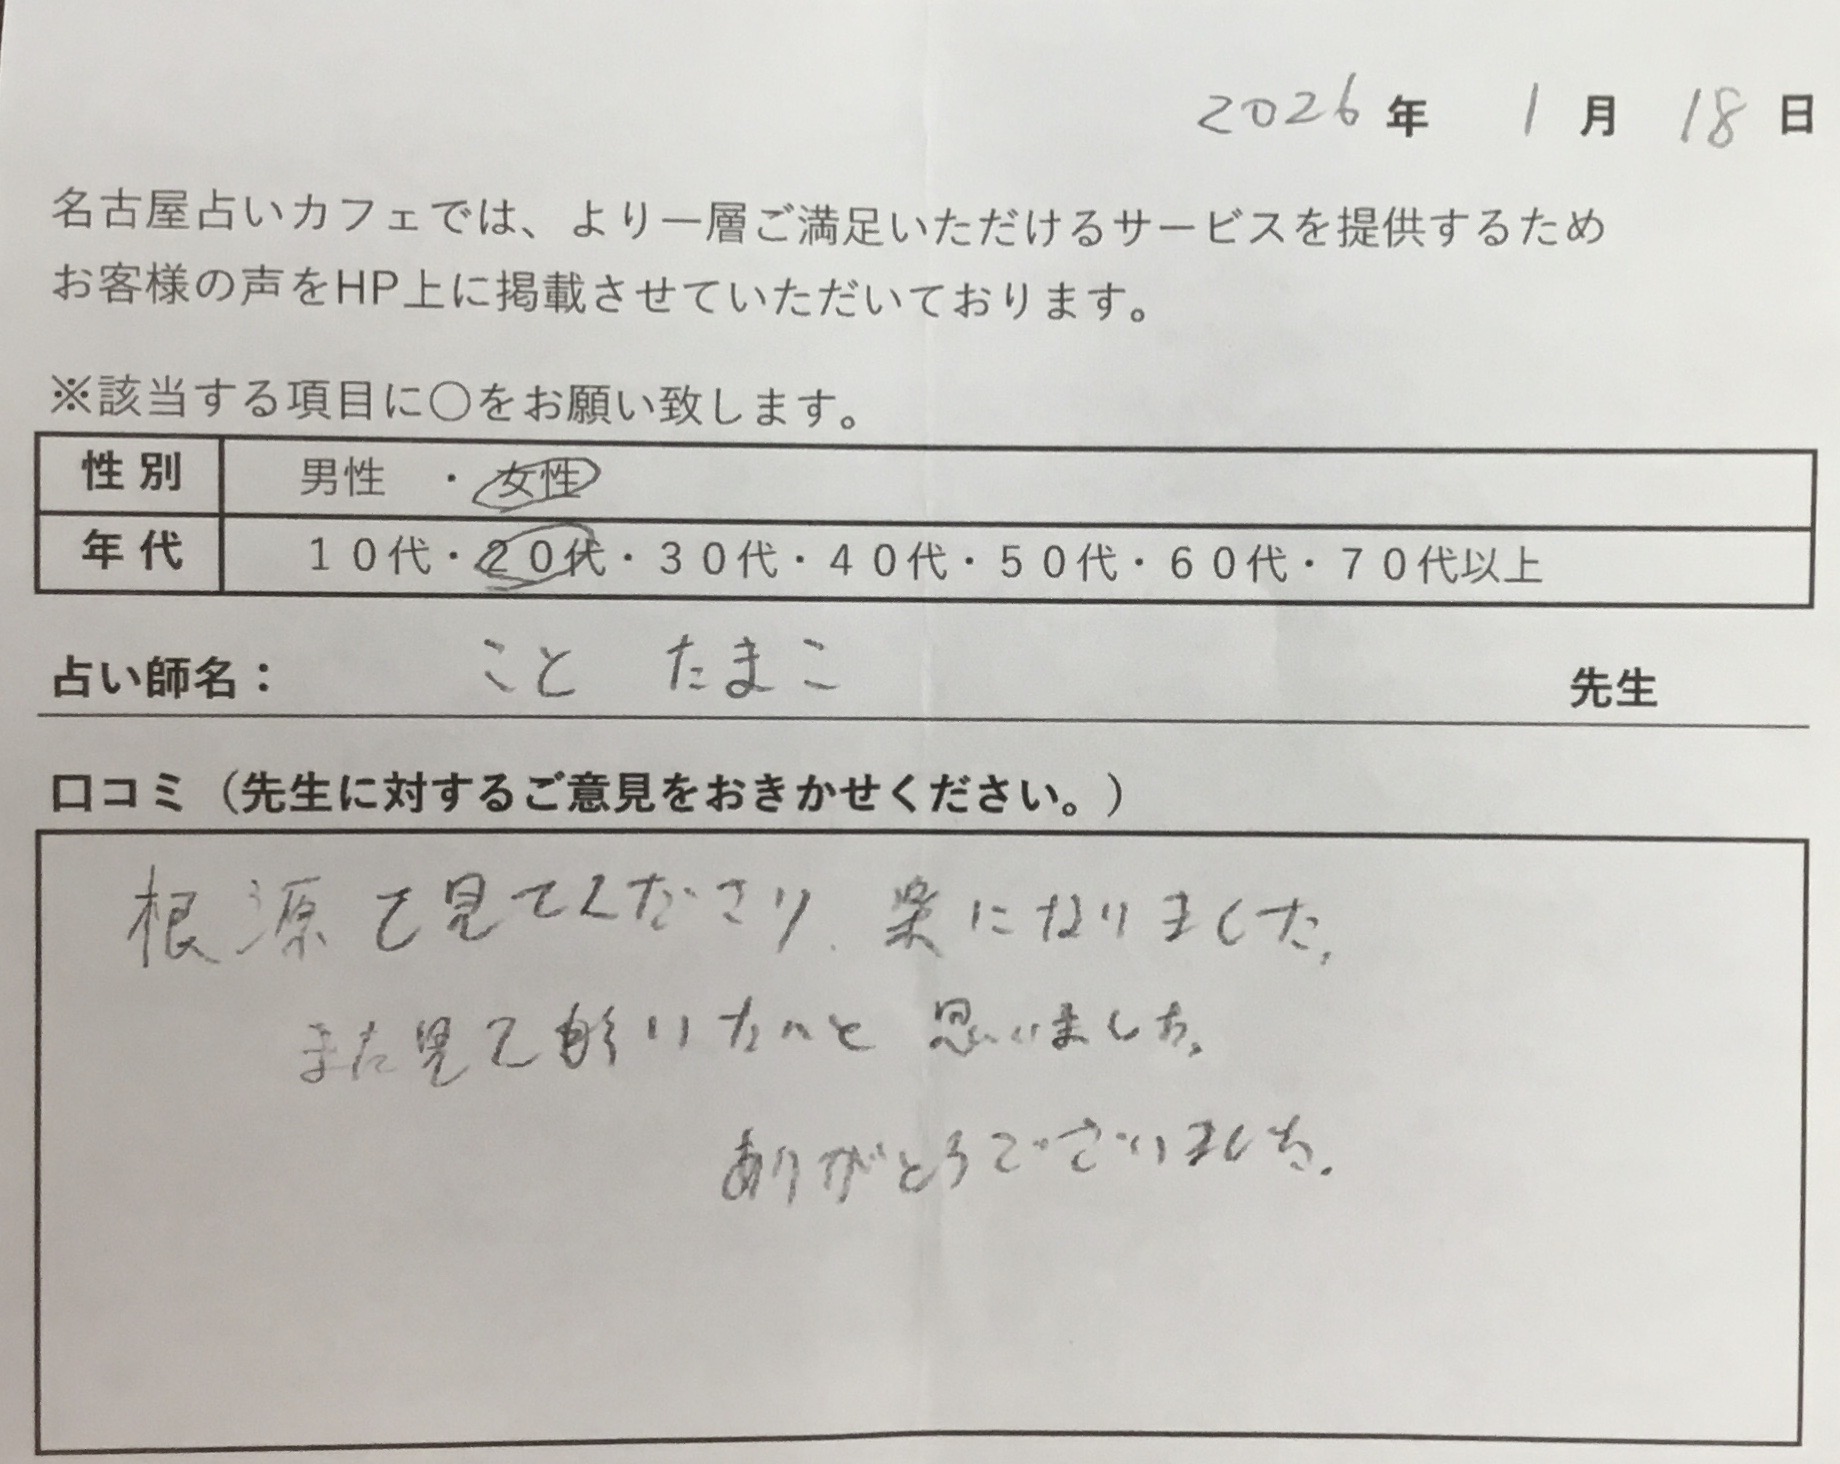 2026年 1月 18日
名古屋占いカフェでは、より一層ご満足いただけるサービスを提供するため
お客様の声をHP上に掲載させていただいております。
※該当する項目に〇をお願い致します。
性別 男性 ・ 女性
年代 10代・20代・30代・40代・50代・60代・70代以上
占い師名: こと たまこ 先生
口コミ(先生に対するご意見をおきかせください。)
根源て見てくださり、楽になりました。
また見て いたいと思いました。
ありがとうございました。